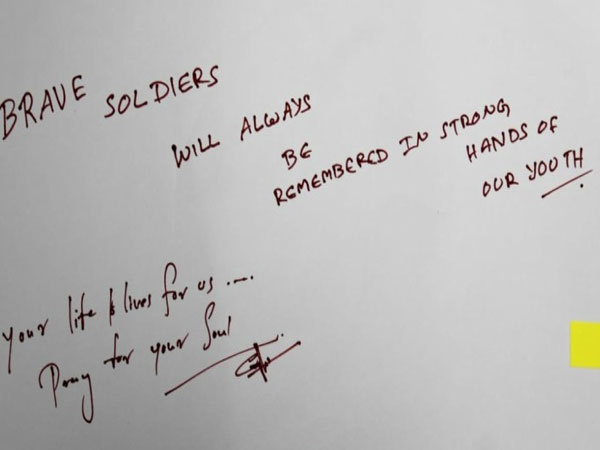 BRAVE SOLDIERS
WILL ALWAYS
BE
REMEMBERED IN STRONG
HANDS OF
OUR YOUTH
Your life & lives for us ....
Pray for your Soul